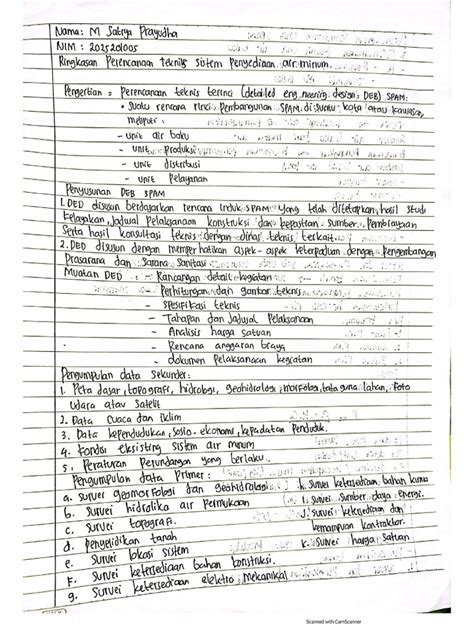 Nama: M Satrya Prayudha
NIM : 2025201005
Ringkasan Perencanaan teknis sistem Penyediaan air minum.
Pengertian = Perencanaan teknis terinci (detailed engineering design, DED) SPAM:
• Suatu rencana rinci Pembangunan SPAM di suatu kota atau kawasan,
meliputi :
- unit air baku
- unit produksi
- unit distribusi
- unit Pelayanan
Penyusunan DED SPAM
1. DED disusun berdasarkan rencana Induk SPAM yang telah ditetapkan, hasil studi
kelayakan, Jadwal Pelaksanaan konstruksi dan kepastian sumber Pembiayaan
Serta hasil konsultasi teknis dengan dinas teknis terkait.
2. DED disusun dengan memperhatikan aspek-aspek keterpaduan dengan Pengembangan
Prasarana dan Sarana Sanitasi
Muatan DED : - Rancangan detail kegiatan
- Perhitungan dan gambar teknis
- Spesifikasi teknis
- Tahapan dan Jadwal Pelaksanaan
- Analisis harga satuan
- Rencana anggaran biaya
- dokumen Pelaksanaan kegiatan
Pengumpulan data Sekunder:
1. Peta dasar, topografi, hidrologi, geohidrologi, morfologi, tata guna lahan, foto
Udara atau Satelit
2. Data Cuaca dan iklim
3. Data kependudukan, sosio-ekonomi, kepadatan Penduduk.
4. Kondisi eksisting sistem air minum
5. Peraturan Perundangan yang berlaku.
Pengumpulan data Primer:
a. survei geomorfologi dan geohidrologi
b. survei hidrolika air Permukaan
c. survei topografi
d. Penyelidikan tanah
e. Survei lokasi sistem
f. Survei ketersediaan bahan konstruksi.
g. Survei ketersediaan elektro mekanikal
h. survei ketersediaan bahan kimia
i. survei Sumber daya energi.
J. Survei ketersediaan dan
kemampuan kontraktor.
k. Survei harga satuan
Scanned with CamScanner